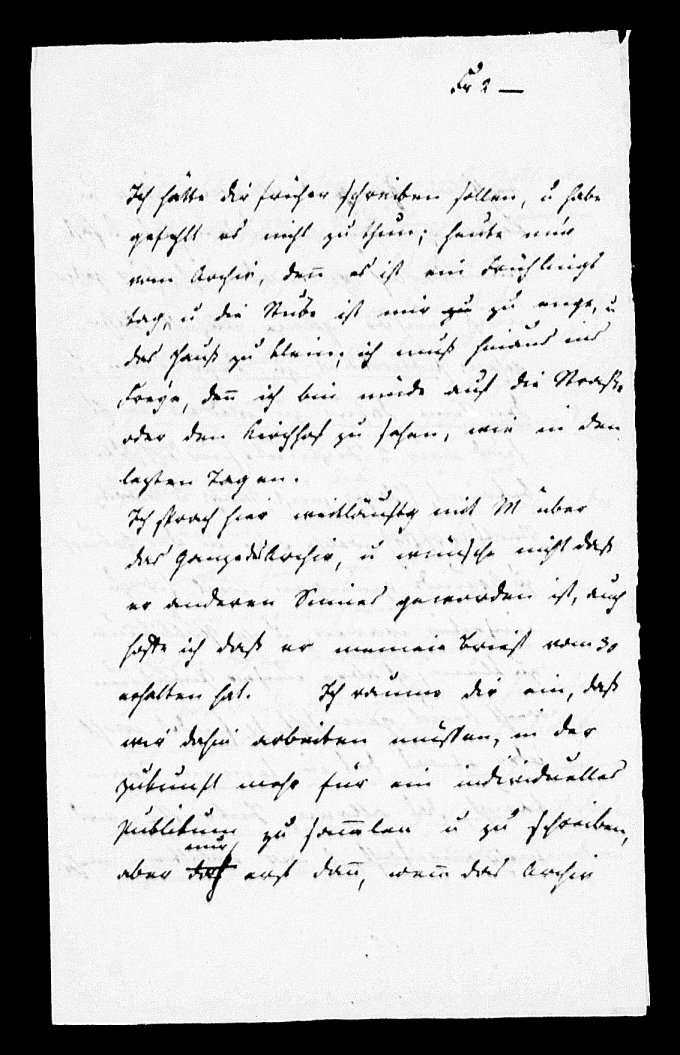 Fr 2 —
Ich hätte dir früher schreiben sollen, u habe
gefehlt es nicht zu thun; heute nur
vom Archiv, deñ es ist ein Frühlings
tag, u die Stube ist mir zu zu enge, u
das Hauß zu klein; ich muß hinaus ins
Freye, deñ ich bin müde auf die Straße
oder den Kirchhof zu sehen, wie in den
lezten Tagen.
Ich sprach hier weitläuftig mit M über
das Ganze des Archiv, u wünsche nicht daß
er anderen Sinnes geworden ist, auch
hoffe ich daß er meinen Brief vom 30
erhalten hat. Ich räume dir ein, daß
wir dahin arbeiten müssen, in der
Zukunft mehr für ein individuelles
Publikum zu sam̄len u zu schreiben,
nur
aber erst dañ, wenn das Archiv